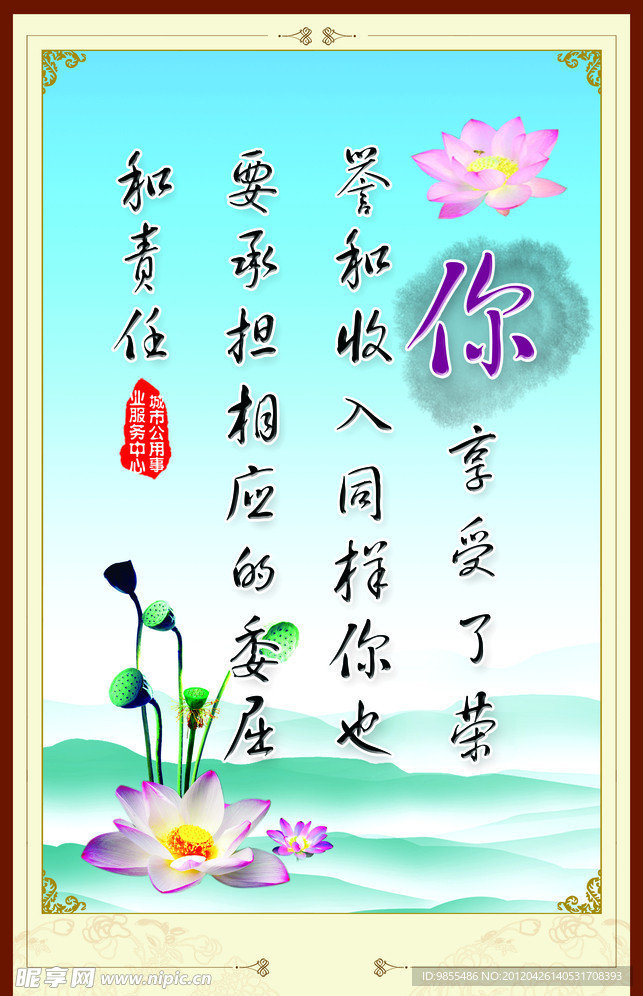 你享受了荣
誉和收入同样你也
要承担相应的委屈
和责任
城市公用事
业服务中心
昵享网 www.nipic.cn
ID:9855486 NO:20120426140531708393